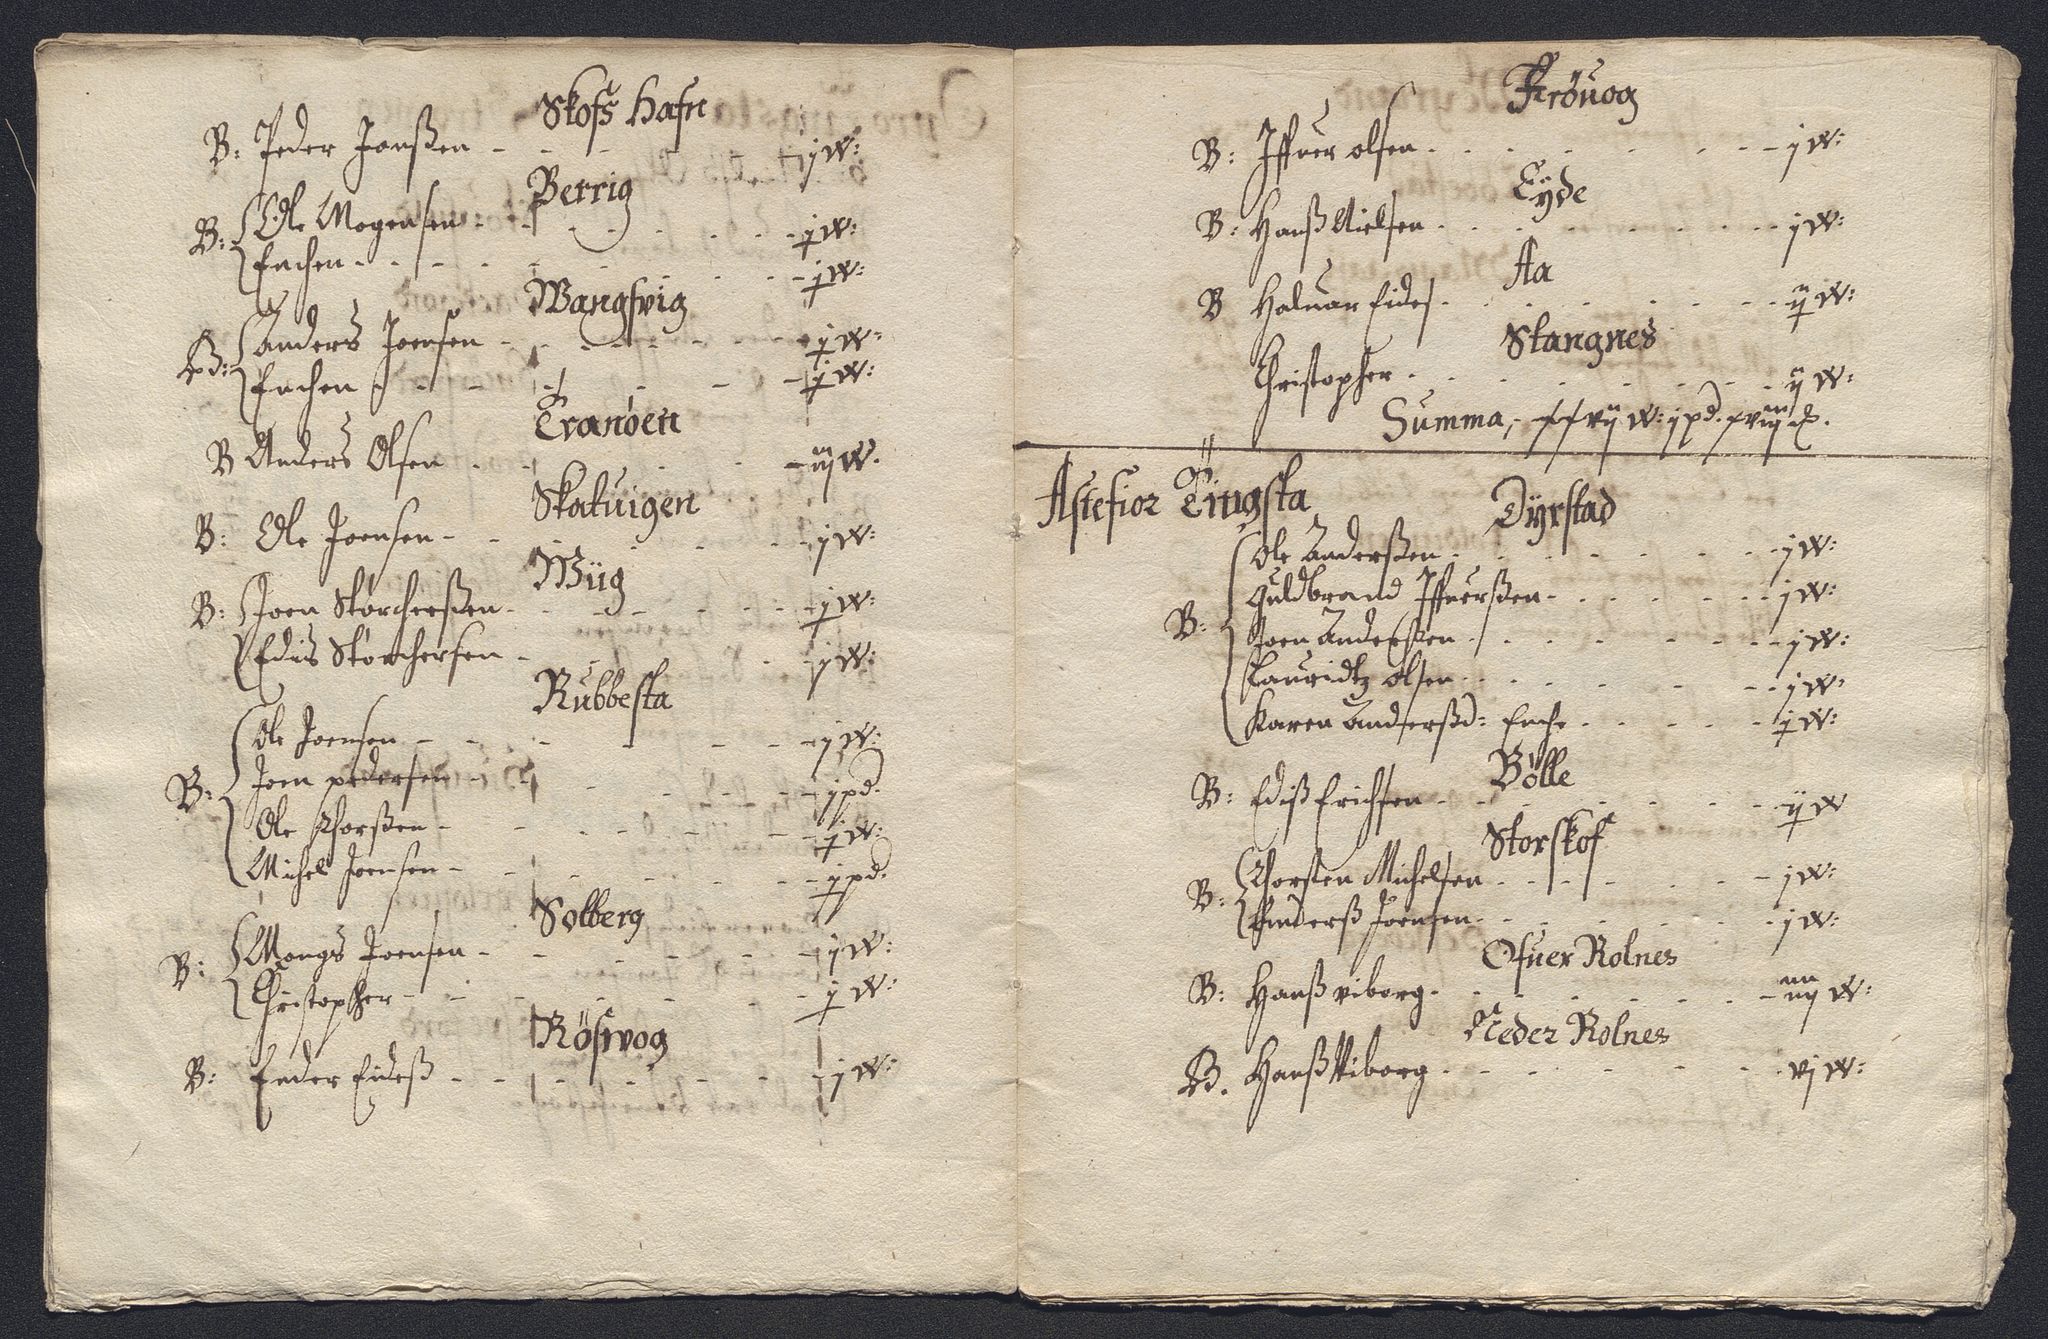 Skofs Hafn
B: Peder Jonßen - - - j w:
Berrig
B: Ole Mogensen - - - j w:
Enchen - - - j w:
Wangsvig
B: Anders Joensen - - - j w:
Enchen - - - j w:
Tranöen
B Anders Olsen - - - iij w.
Skatuigen
B: Ole Joensen - - - j w:
Wiig
B: Joen Storcherßen - - - j w:
Edis Storchersen - - - j w:
Rubbesta
Ole Joensen - - - j w:
B: Joen pedersen - - - j pd.
Ole Thorßen - - - j w:
Michel Joensen - - - j pd.
Solberg
B: Mongs Joensen - - - j w:
Christopher - - - j w:
Rösvog
B: Peder Eideß - - - j w:
Frövog
B: Iffuer olsen - - - j w:
Eyde
B: Hanß Nielsen - - - j w:
Aa
B Haluar Eides - - - ij w:
Stangnes
Christopher - - - ij w:
Summa, xxvij w: j pd. xviij
Astefior Tingsta
Dyrstad
Ole Anderßen - - - j w:
Guldbrand Iffuerßen - - - j w:
B: Joen Anderßen - - - j w:
Lauridtz olsen - - - j w:
Karen Anderßd: Enche - - - j w:
Bölle
B: Ediß Erichsen - - - ij w
Storskof
B: Thorsten Michelsen - - - j w:
Anderß Joensen - - - j w:
Ofuer Rolnes
B: Hanß viborg - - - iiij w:
Neder Rolnes
B. Hanß Viborg - - - vj w: